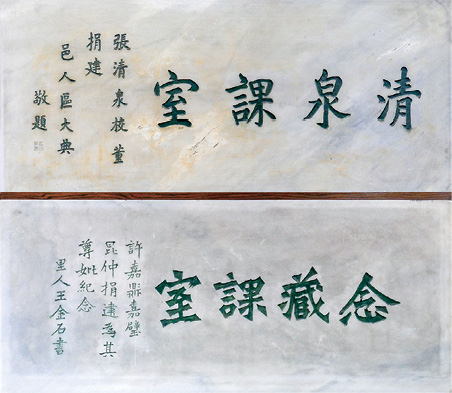 清泉課室
張清泉校董
捐建
邑人區大典
敬題
念藏課室
許嘉鼎嘉璧
昆仲捐建為其
尊妣紀念
里人王金石書